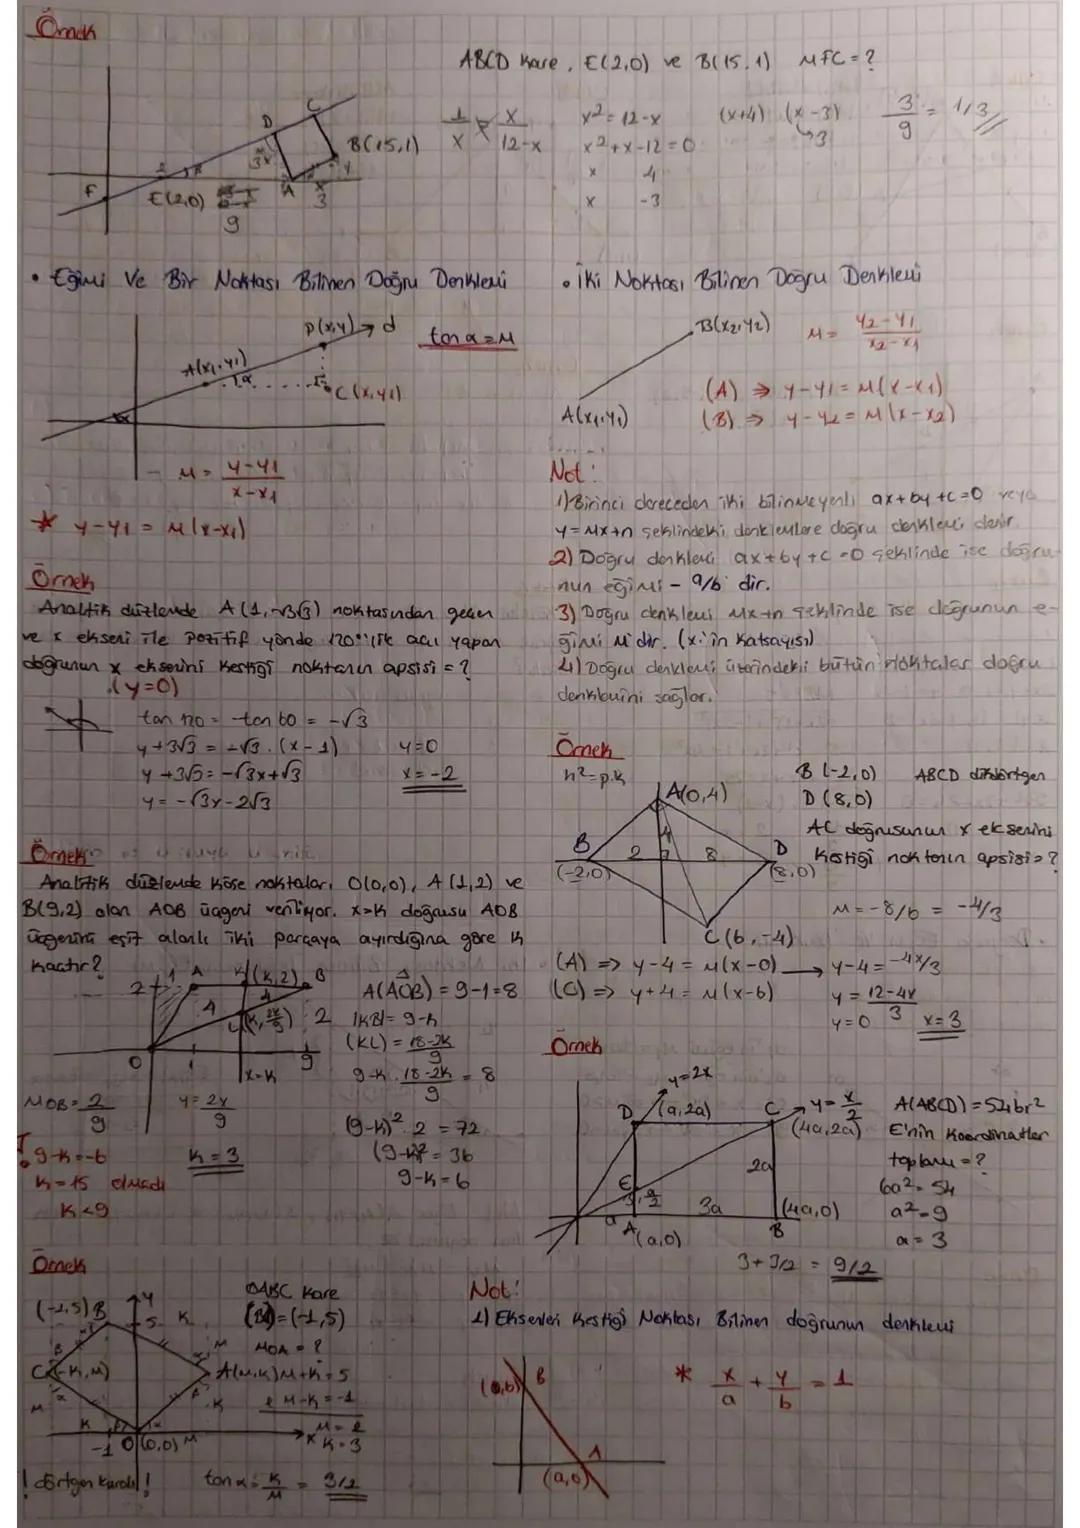 Örnek
ABCD kare, E(2,0) ve B(15,1) MFC=?
D C
B(15,1)
F E(2,0) A
3x x 1
9 3
1/x = x/12-x
x²=12-x
x²+x-12=0
x 4
x -3
(x+4) (x-3)
3
3/9 = 1/3
• Eğimi Ve Bir Noktası Bilinen Doğru Denklemi
P(x,y) d
tan α = M
A(x1,y1)
α
C(x,y1)
α
M = y-y1/x-x1
* y-y1 = M(x-x1)
• İki Noktası Bilinen Doğru Denklemi
B(x2,y2)
A(x1,y1)
M = y2-y1/x2-x1
(A) ⇒ y-y1 = M(x-x1)
(B) ⇒ y-y2 = M(x-x2)
Not:
1) Birinci dereceden iki bilinmeyenli ax+by+c=0 veya
y=Mx+n şeklindeki denklemlere doğru denklemi denir
2) Doğru denklemi ax+by+c=0 şeklinde ise doğru-
nun eğimi - a/b dir.
3) Doğru denklemi Mx+n şeklinde ise doğrunun e-
ğimi M dir. (x'in katsayısı)
4) Doğru denklemi üzerindeki bütün noktalar doğru
denklemini sağlar.
Örnek
Analitik düzlemde A(1,-3√3) noktasından geçen
ve x ekseni ile pozitif yönde 120°'lik açı yapan
doğrunun x eksenini kestiği noktanın apsisi = ?
(y=0)
tan 120 = -tan 60 = -√3
y+3√3 = -√3.(x-1)
y+3√3 = -√3x+√3
y = -√3x-2√3
y=0
x=-2
Örnek
h²=p.k
A(0,4)
B
(-2,0)
2 4 8
D
(8,0)
C(6,-4)
B(-2,0) ABCD dikdörtgen
D(8,0)
AC doğrusunun x eksenini
kestiği noktanın apsisi=?
M = -8/6 = -4/3
(A) ⇒ y-4 = M(x-0) → y-4 = -4x/3
(C) ⇒ y+4 = M(x-6)
y = 12-4x/3
y=0 x=3
Örnek
Analitik düzlemde köşe noktaları O(0,0), A(1,2) ve
B(9,2) olan AOB üçgeni veriliyor. x=k doğrusu AOB
üçgenini eşit alanlı iki parçaya ayırdığına göre k
kaçtır?
2 1 A K(k,2) B
4 4
L(k,2k/9) 2
O 1 9
x=k
MOB = 2/9
y = 2x/9
A(AOB) = 9-1=8
|KB| = 9-k
(KL) = 18-2k/9
9-k . 18-2k/9 = 8
(9-k)² . 2 = 72
(9-k)² = 36
9-k=6
k=3
9-k=-6
k=15 olmadı
k<9
Örnek
y=2x
D (a,2a) C y=x/2
(4a,2a)
2a
E a/2
a 3a
A (a,0) B (4a,0)
A(ABCD)=54br²
E'nin koordinatlar
toplamı=?
6a²=54
a²=9
a=3
3+3/2 = 9/2
Örnek
OABC kare
(B)=(-1,5)
MOA=?
(-1,5) B y 5 k
C(-k,M)
A(M,k) M+k=5
M-k=-1
M=2
k=3
-1 O(0,0) M x
! dörtgen kuralı !
tan α = k/M = 3/2
Not:
1) Eksenleri Kestiği Noktası Bilinen doğrunun denklemi
(0,b) B
A
(a,0)
* x/a + y/b = 1